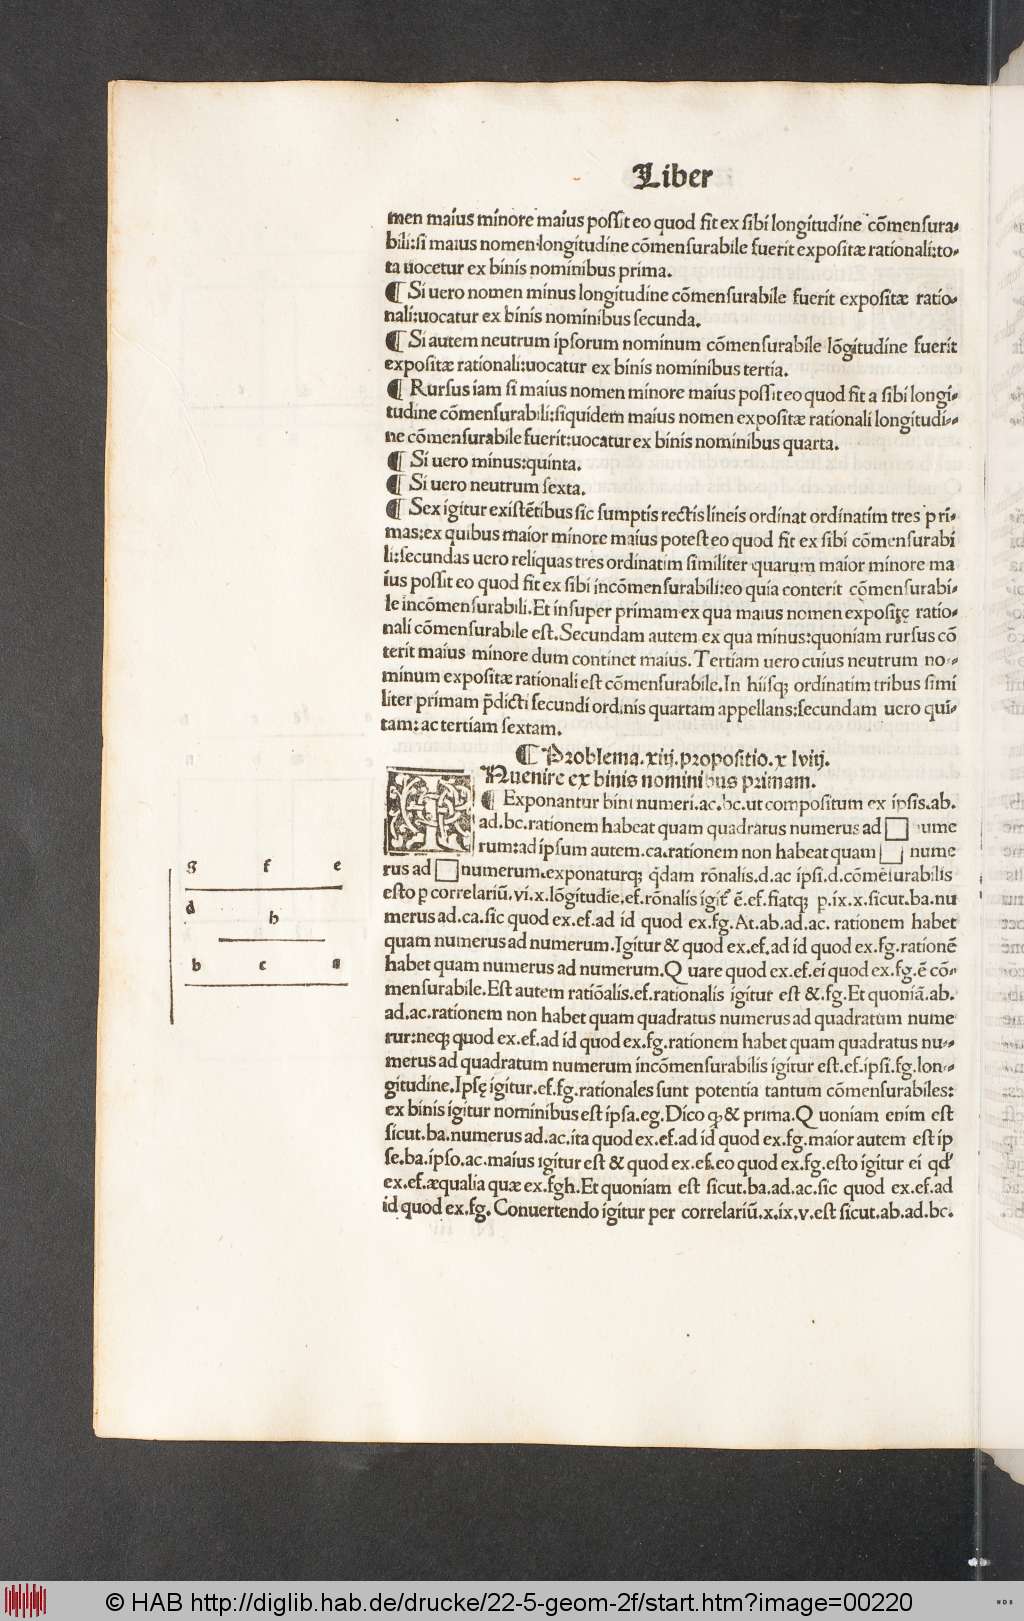 Liber
men maius minore maius possit eo quod fit ex sibi longitudine cõmensura-
bili:si maius nomen longitudine cõmensurabile fuerit expositæ rationali:to-
ta uocetur ex binis nominibus prima.
¶ Si uero nomen minus longitudine cõmensurabile fuerit expositæ ratio-
nali:uocatur ex binis nominibus secunda.
¶ Si autem neutrum ipsorum nominum cõmensurabile lõgitudine fuerit
expositæ rationali:uocatur ex binis nominibus tertia.
¶ Rursus iam si maius nomen minore maius possit eo quod fit a sibi longi-
tudine cõmensurabili:siquidem maius nomen expositæ rationali longitudi-
ne cõmensurabile fuerit:uocatur ex binis nominibus quarta.
¶ Si uero minus:quinta.
¶ Si uero neutrum sexta.
¶ Sex igitur existẽtibus sic sumptis rectis lineis ordinat ordinatim tres pri-
mas:ex quibus maior minore maius potest eo quod fit ex sibi cõmensurabi
li:secundas uero reliquas tres ordinatim similiter quarum maior minore ma
ius possit eo quod fit ex sibi incõmensurabili:eo quia conterit cõmensurabi-
le incõmensurabili.Et insuper primam ex qua maius nomen expositę ratio-
nali cõmensurabile est.Secundam autem ex qua minus:quoniam rursus cõ
terit maius minore dum continet maius.Tertiam uero cuius neutrum no-
minum expositæ rationali est cõmensurabile.In hiisq; ordinatim tribus simi
liter primam p̃dicti secundi ordinis quartam appellans:secundam uero qui-
tam:ac tertiam sextam.
¶ Problema.xiij.propositio.xlviij.
Nuenire ex binis nominibus primam.
¶ Exponantur bini numeri.ac.bc.ut compositum ex ipsis.ab.
ad.bc.rationem habeat quam quadratus numerus ad □ nume
rum:ad ipsum autem.ca.rationem non habeat quam □ nume
rus ad □ numerum.exponaturq; q̃dam rõnalis.d.ac ipsi.d.cõmẽsurabilis
esto p correlariũ.vi.x.lõgitudie.ef.rõnalis igit̃ ẽ.ef.fiatq; p.ix.x.sicut.ba.nu
merus ad.ca.sic quod ex.ef.ad id quod ex.fg.At.ab.ad.ac. rationem habet
quam numerus ad numerum.Igitur & quod ex.ef.ad id quod ex.fg.rationẽ
habet quam numerus ad numerum.Quare quod ex.ef.ei quod ex.fg.ẽ cõ-
mensurabile.Est autem ratiõalis.ef.rationalis igitur est &.fg.Et quoniã.ab.
ad.ac.rationem non habet quam quadratus numerus ad quadratum nume
rur:neq; quod ex.ef.ad id quod ex.fg.rationem habet quam quadratus nu-
merus ad quadratum numerum incõmensurabilis igitur est.ef.ipsi.fg.lon-
gitudine.Ipsę igitur.ef.fg.rationales sunt potentia tantum cõmensurabiles:
ex binis igitur nominibus est ipsa.eg.Dico q; & prima.Quoniam enim est
sicut.ba.numerus ad.ac.ita quod ex.ef.ad id quod ex.fg.maior autem est ip
se.ba.ipso.ac.maius igitur est & quod ex.ef.eo quod ex.fg.esto igitur ei qd'
ex.ef.æqualia quæ ex.fgh.Et quoniam est sicut.ba.ad.ac.sic quod ex.ef.ad
id quod ex.fg.Conuertendo igitur per correlariũ.x.ix.v.est sicut.ab.ad.bc.
g f e
d
h
b c a
© HAB http://diglib.hab.de/drucke/22-5-geom-2f/start.htm?image=00220